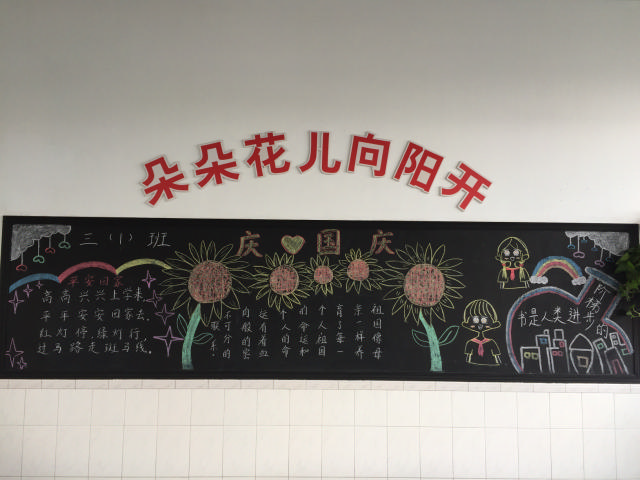 朵朵花儿向阳开
三（1）班
庆国庆
平安回家
高高兴兴上学来,
平平安安回家去,
红灯停绿灯行,
过马路走班马线。
祖国像母
亲一样养
育了每一
个人祖国
的命运和
个人的命
运有着血
肉般的密
不可分的
联系!
书是人类进步的阶梯